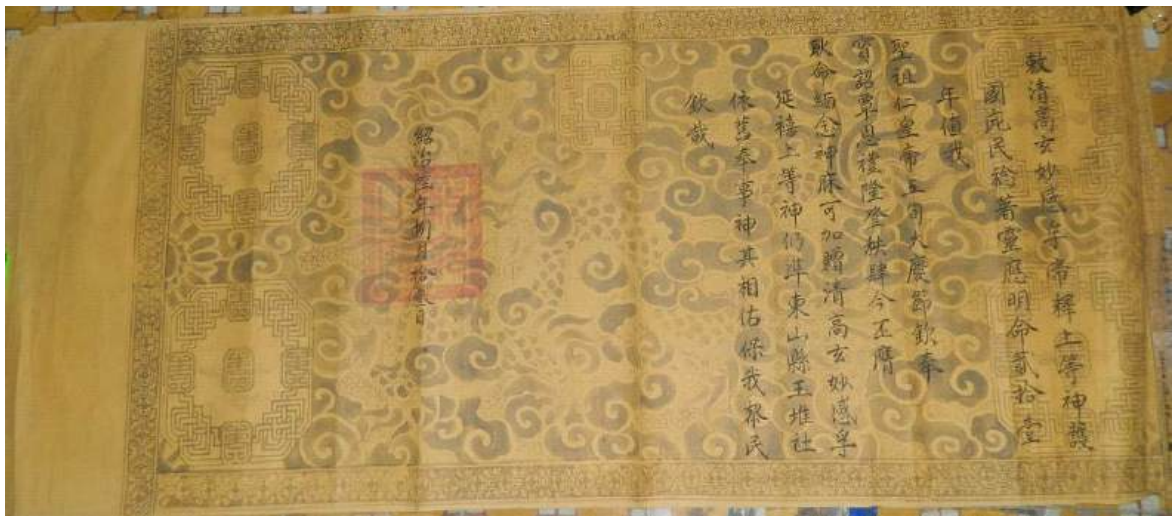 敕清高玄妙感孚帝釋上等神護
國庇民稔著靈應明命貳拾壹
年值我
聖祖仁皇帝五旬大慶節欽奉
寶詔覃恩禮隆登秩肆今丕膺
耿命緬念神庥可加贈清高玄妙感孚
延禧上等神仍準東山縣玉堆社
依舊奉事神其相佑保我黎民
欽哉
紹治陸年捌月拾叁日